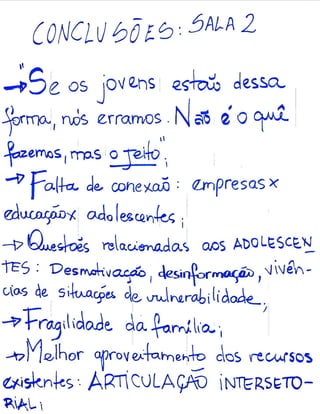 CONCLUSÕES: SALA 2
→ "Se os jovens estão dessa
forma, nós erramos. Não é o quê
fazemos, mas o jeito";
→ Falta de conexão: empresas x
educação x adolescentes;
→ Questões relacionadas aos ADOLESCEN
TES: Desmotivação, desinformação, vivên-
cias de situações de vulnerabilidade;
→ Fragilidade da família;
→ Melhor aproveitamento dos recursos
existentes: ARTICULAÇÃO INTERSETO-
RIAL;